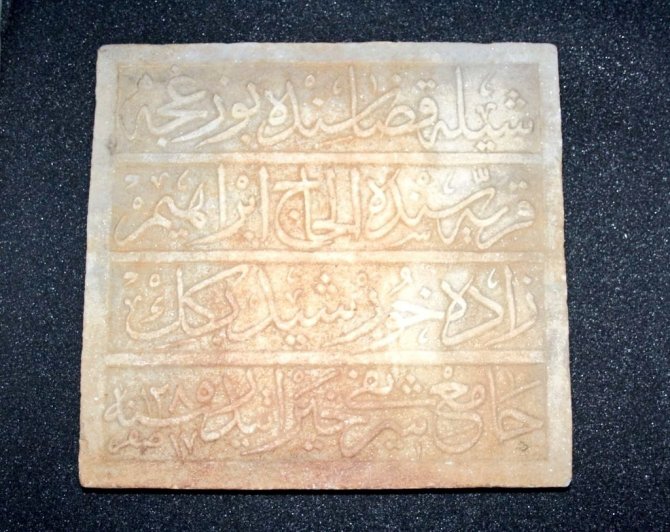 شيله قضاسنده بوزغجه
قريه سنده الحاج ابراهيم
زاده خورشيد بكك
جامع شريفى خيراتيدر سنه ١٢٨٩
١٧ صفر